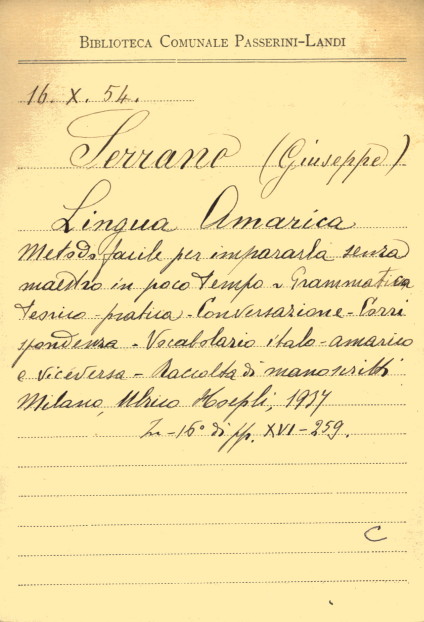 BIBLIOTECA COMUNALE PASSERINI-LANDI
16. X. 54.
Serrano (Giuseppe)
Lingua Amarica
Metodo facile per impararla senza
maestro in poco tempo - Grammatica
teorico-pratica - Conversazione - Corri
spondenza - Vocabolario italo-amarico
e viceversa - Raccolta di manoscritti
Milano, Ulrico Hoepli, 1937
In-16° di pp. XVI-259.
C